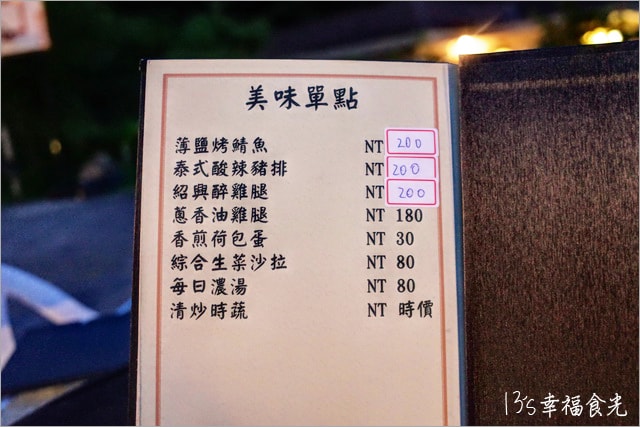 美味單點
薄鹽烤鯖魚 NT 200
泰式酸辣豬排 NT 200
紹興醉雞腿 NT 200
蔥香油雞腿 NT 180
香煎荷包蛋 NT 30
綜合生菜沙拉 NT 80
每日濃湯 NT 80
清炒時蔬 NT 時價
13's幸福食光